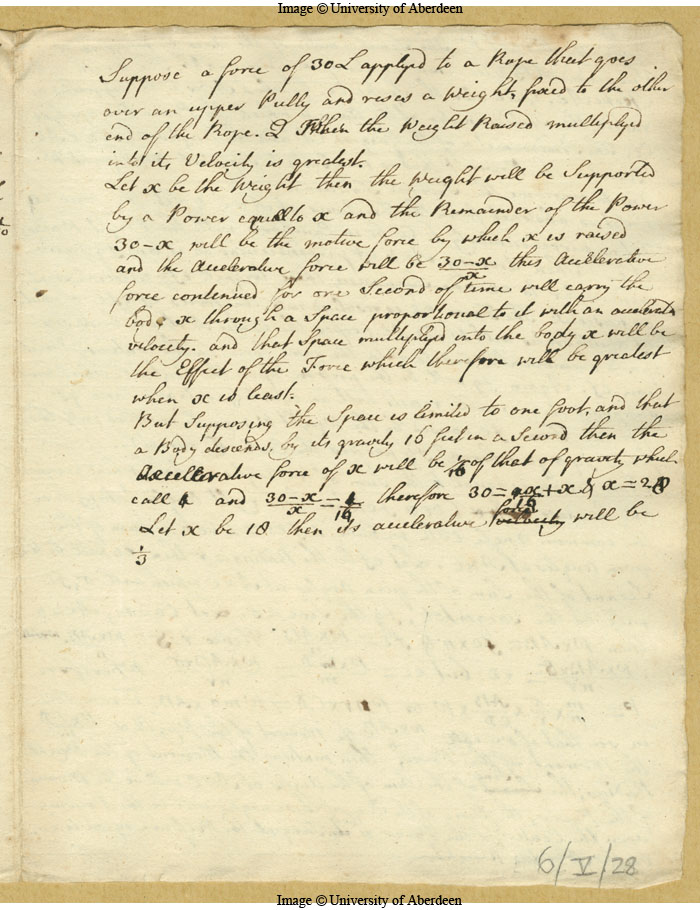 Image © University of Aberdeen
Suppose a force of 30L applyd to a Rope that goes
over an upper Pully and reses a Weight, fixed to the other
end of the Rope. Q When the Weight Raised multiplyd
into its Velocity is greatest.
Let x be the Weight then the Weight will be Supported
by a Power equal to x and the Remainder of the Power
30-x will be the motive force by which x is raised
and the Accelerative force will be 30-x/x this Accelerative
force continued for one Second of time will carry the
body x through a Space proportional to it with an accelerated
velocity. and that Space multiplyd into the body x will be
the Effect of the Force which therefore will be greatest
when x is least.
But Supposing the Space is limited to one foot, and that
a Body descends, by its gravity 16 feet in a Second then the
accellerative force of x will be 1/16 of that of gravity which
call 1 and 30-x/x = 1/16 therefore 30 = x/16 + x & x = 28
Let x be 18 then its accelerative force velocity will be
1/3
6/V/28
Image © University of Aberdeen